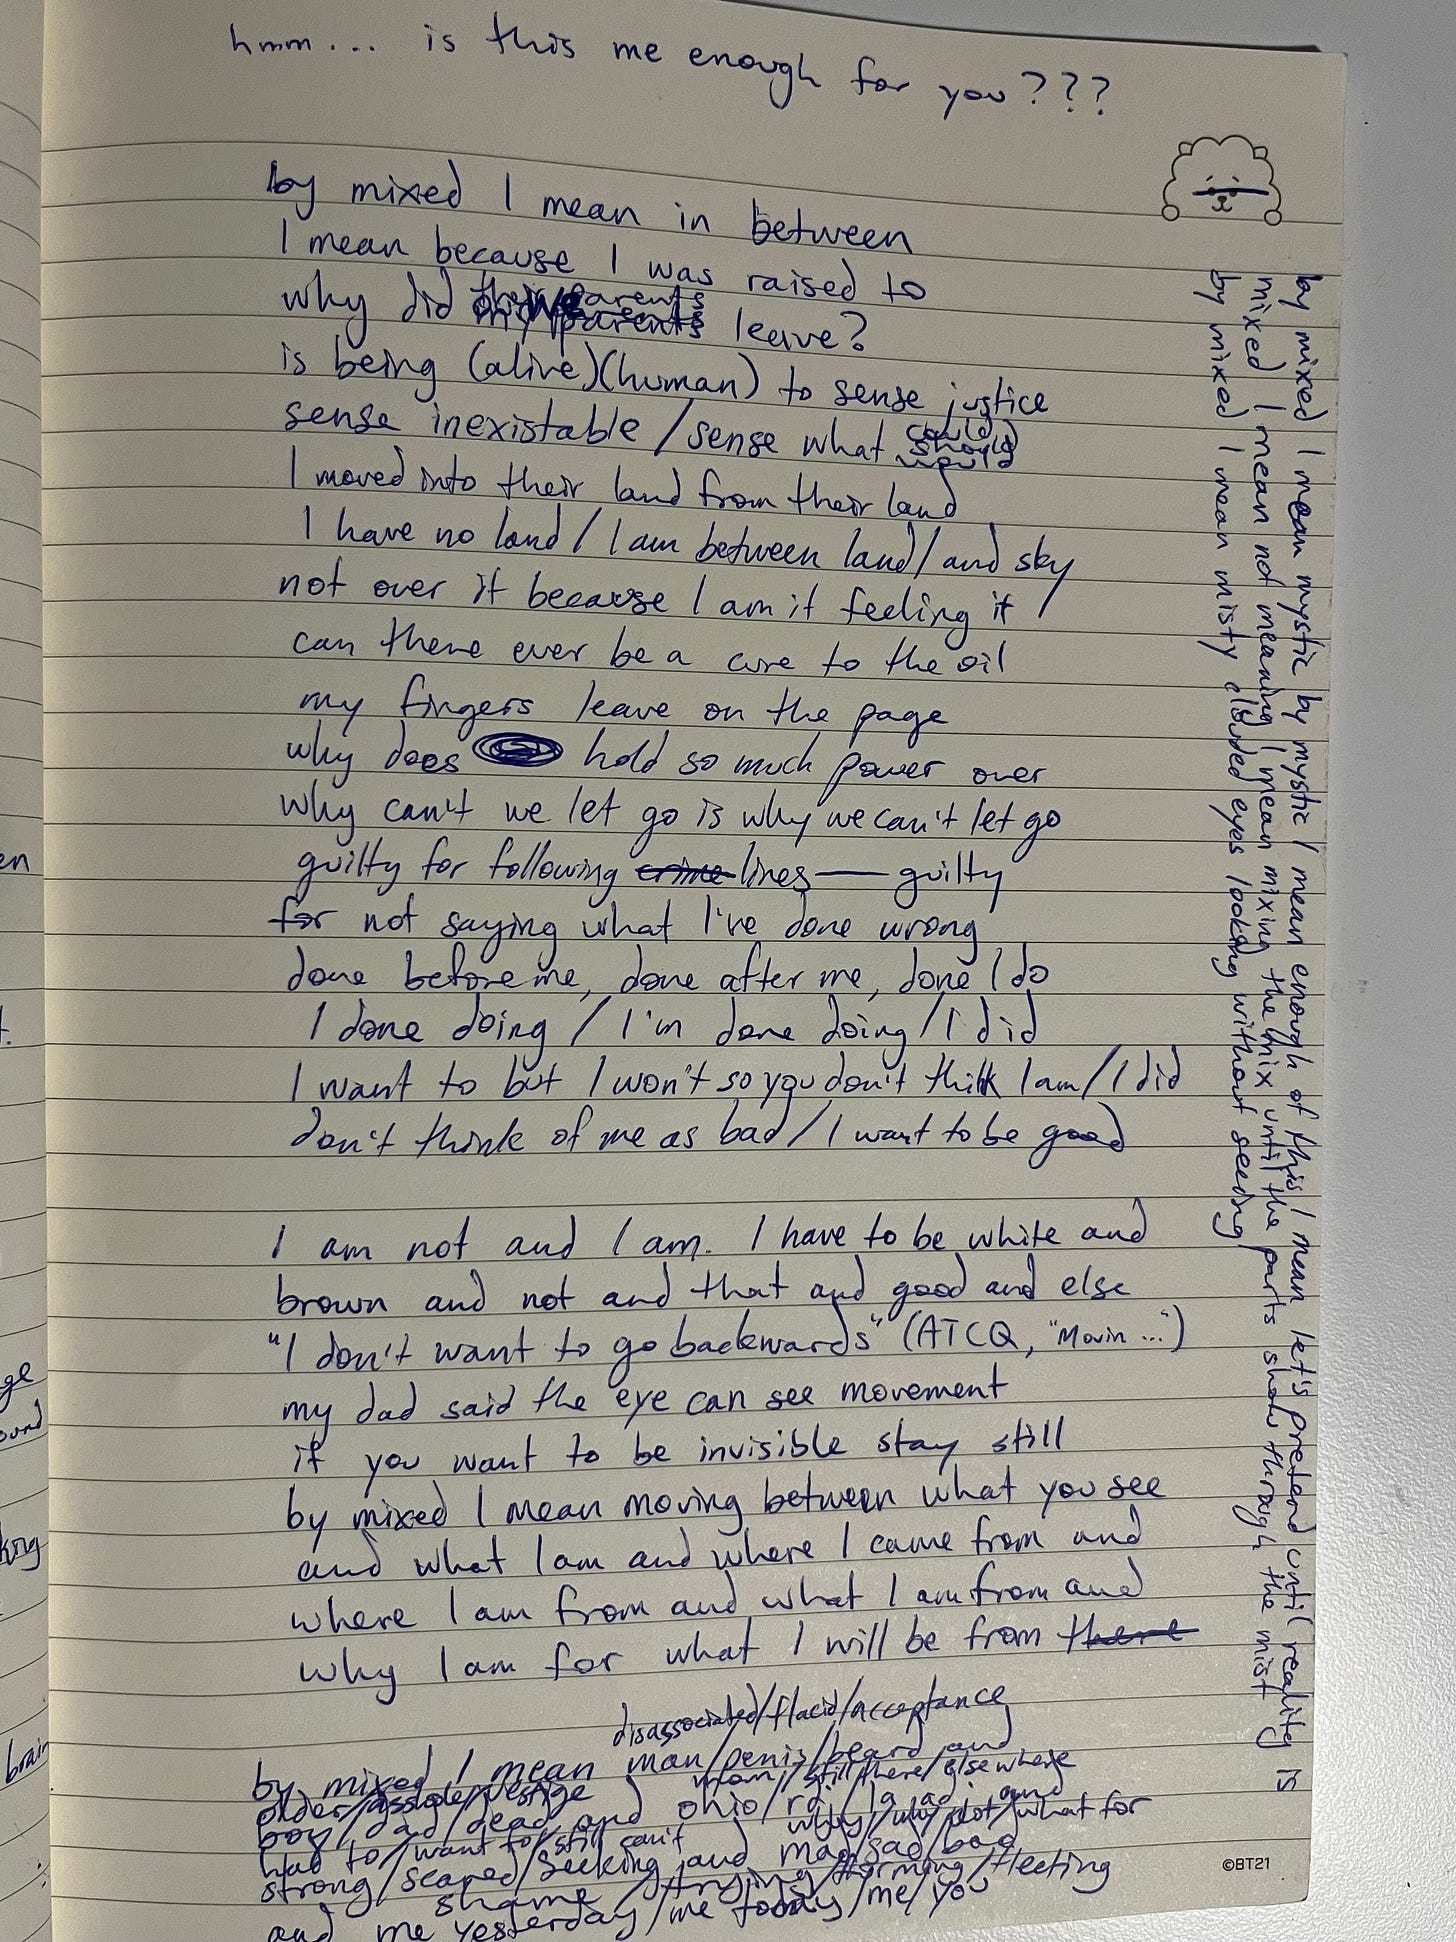 hmm... is this me enough for you???
by mixed I mean in between
I mean because I was raised to
why did their parents leave?
is being (alive)(human) to sense justice
sense inexistable / sense what could should would
I moved into their land from their land
I have no land / I am between land / and sky
not over it because I am it feeling it /
can there ever be a cure to the oil
my fingers leave on the page
why does hold so much power over
why can't we let go is why we can't let go
guilty for following crime lines — guilty
for not saying what I've done wrong
done before me, done after me, done I do
I done doing / I'm done doing / I did
I want to but I won't so you don't think I am / I did
don't think of me as bad / I want to be good
I am not and I am. I have to be white and
brown and not and that and good and else
"I don't want to go backwards" (ATCQ, "Movin ...")
my dad said the eye can see movement
if you want to be invisible stay still
by mixed I mean moving between what you see
and what I am and where I came from and
where I am from and what I am from and
why I am for what I will be from there
disassociated/flacid/acceptance
by mixed I mean man/penis/beard and
older/asshole/vestige mom/still there/elsewhere
boy/dad/dead and ohio/ and
had to/want to/still can't why/ plot/what for
strong/scared/seeking and mad/sad/bad
shame /trying/forming/fleeting
and me yesterday/me today/me/you
by mixed I mean mystic by mystic I mean enough of this I mean let's pretend until reality is
mixed I mean not meaning I mean mixing the mix until the parts show through the mist
by mixed I mean misty clouded eyes looking without seeding
en
t.
ge
ound
king
brain
©BT21